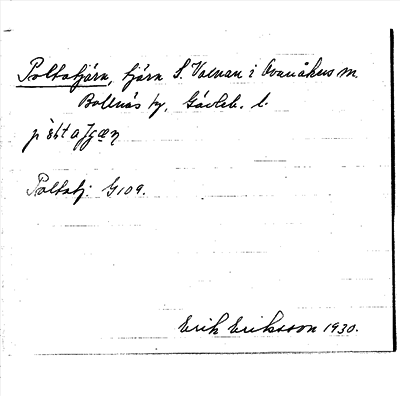 Poltatjärn, tjärn S. Voxnan i Ovanåkers m.
Bollnäs kg. Gävleb. l.
Poltatj. G109.
Erik Eriksson 1930.